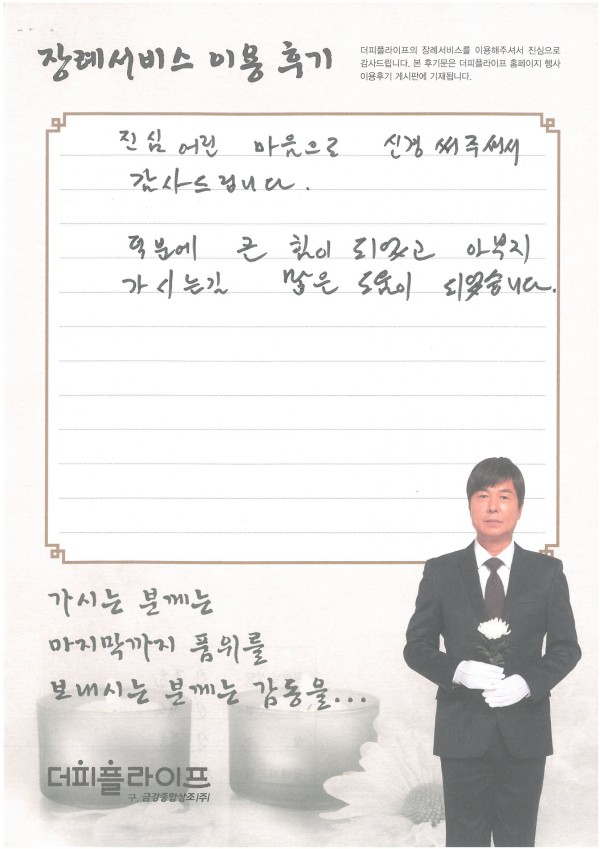 장례서비스 이용 후기
더피플라이프의 장례서비스를 이용해주셔서 진심으로
감사드립니다. 본 후기문은 더피플라이프 홈페이지 행사
이용후기 게시판에 기재됩니다.
진심 어린 마음으로 신경 써주셔서
감사드립니다.
덕분에 큰 힘이 되었고 아부지
가시는길 많은 도움이 되었습니다.
가시는 분께는
마지막까지 품위를
보내시는 분께는 감동을...
더피플라이프
구. 금강종합상조(주)